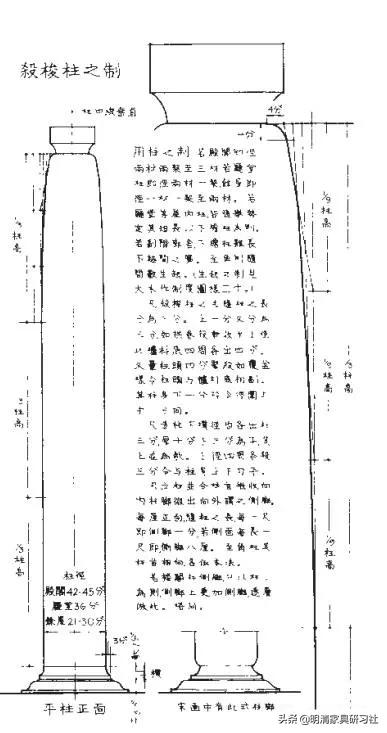 殺梭柱之制
4分
4分
用柱之制 若殿閣即徑
兩材兩栔至三材若廳堂
柱即徑兩材一栔餘屋即
徑一材一栔至兩材。若
廳堂等屋內柱,皆隨舉勢
定其短長,以下檐柱為則。
若副階廊舍,下檐柱雖長
不越間之廣。至角則隨
間數生起。(生起之制見
大木作制度圖樣二十。)
凡殺梭柱之法隨柱之長
分為三分。上一分又分為
三分如栱卷殺漸收至上徑
比櫨枓底四周各出四分。
又量柱頭四分緊殺如覆盆
樣令柱頭與櫨枓底相副。
其柱身下一分殺令徑圍與
中一分同。
凡造柱下櫍徑周各出柱
三分厚十分下三分為平其
上並為欹。上徑四周各殺
三分令與柱身上下勻平。
凡立柱並令柱首微收向
內柱腳微出向外謂之側腳。
每屋正面隨柱之長每一尺
即側腳一分若側面每長一
尺即側腳八厘。至角柱其
柱首相向各依本法。
若樓閣柱側腳只以柱
為則側腳上更加側腳逐層
倣此。塔同。
1/3柱高
1/3柱高
1/3柱高
1/3柱高
1/3柱高
1/3柱高
柱徑
殿閣42-45分
廳堂36分
餘屋21-30分
3分
櫍
平柱正面
宋画中有此式柱腳
头条@明清家具研习社